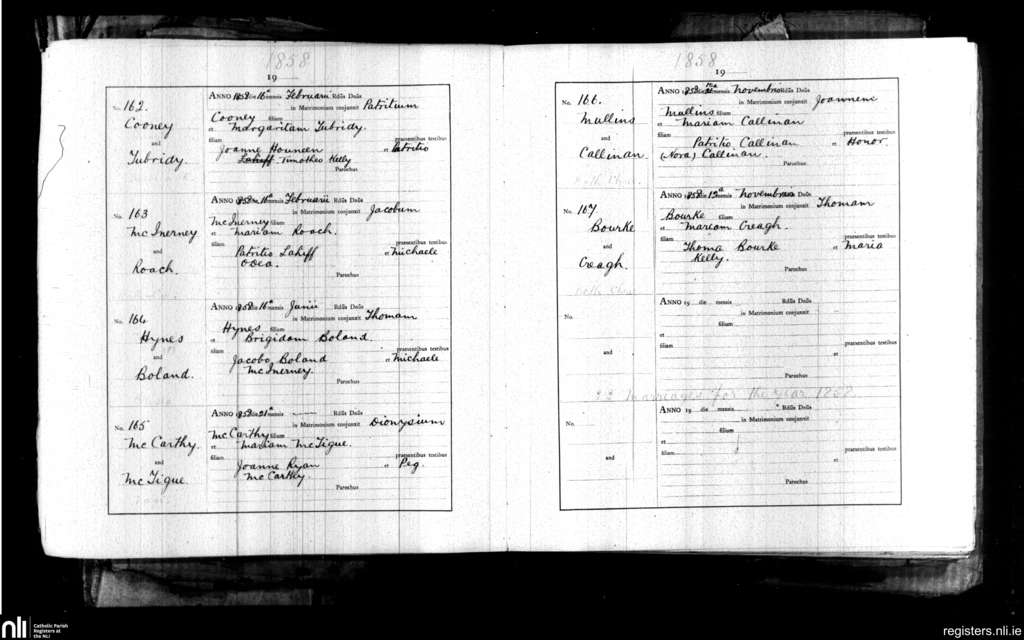 1858
19
No. 162.
Cooney
and
Tubridy.
ANNO 1858 die 16a mensis Februarii Rdus Dnus
in Matrimonium conjunxit Patritium
Cooney filium
et Margaritam Tubridy.
filiam praesentibus testibus
Joanne Houneen et Patritio
Lahiff Timotheo Kelly
Parochus
No. 163
McInerney
and
Roach.
ANNO 1858 die 16a mensis Februarii Rdus Dnus
in Matrimonium conjunxit Jacobum
McInerney filium
et Mariam Roach.
filiam praesentibus testibus
Patritio Lahiff et Michaele
O'Dea.
Parochus
No. 164
Hynes
and
Boland.
ANNO 1858 die 16a mensis Junii Rdus Dnus
in Matrimonium conjunxit Thomam
Hynes filium
et Brigidam Boland.
filiam praesentibus testibus
Jacobo Boland et Michaele
McInerney.
Parochus
No. 165
McCarthy.
and
McTigue
ANNO 1858 die 21a mensis — Rdus Dnus
in Matrimonium conjunxit Dionysium
McCarthy filium
et Mariam McTigue.
filiam praesentibus testibus
Joanne Ryan et Peg.
McCarthy.
Parochus
1858
19
No. 166.
Mullins
and
Callinan.
ANNO 1858 die mensis Novembris Rdus Dnus
in Matrimonium conjunxit Joannem
Mullins filium
et Mariam Callinan
filiam praesentibus testibus
Patritio Callinan et Honor.
(Nora) Callinan.
Parochus
No. 167
Bourke
and
Creagh.
ANNO 1858 die 12a mensis Novembris Rdus Dnus
in Matrimonium conjunxit Thomam
Bourke filium
et Mariam Creagh.
filiam praesentibus testibus
Thoma Bourke et Maria
Kelly.
Parochus
No.
and
ANNO 19 die mensis Rdus Dnus
in Matrimonium conjunxit
filium
et
filiam praesentibus testibus
et
Parochus
Marriages for the year 1858.
No.
and
ANNO 19 die mensis Rdus Dnus
in Matrimonium conjunxit
filium
et
filiam praesentibus testibus
et
Parochus
nli
Catholic Parish
Registers at
the NLI
registers.nli.ie